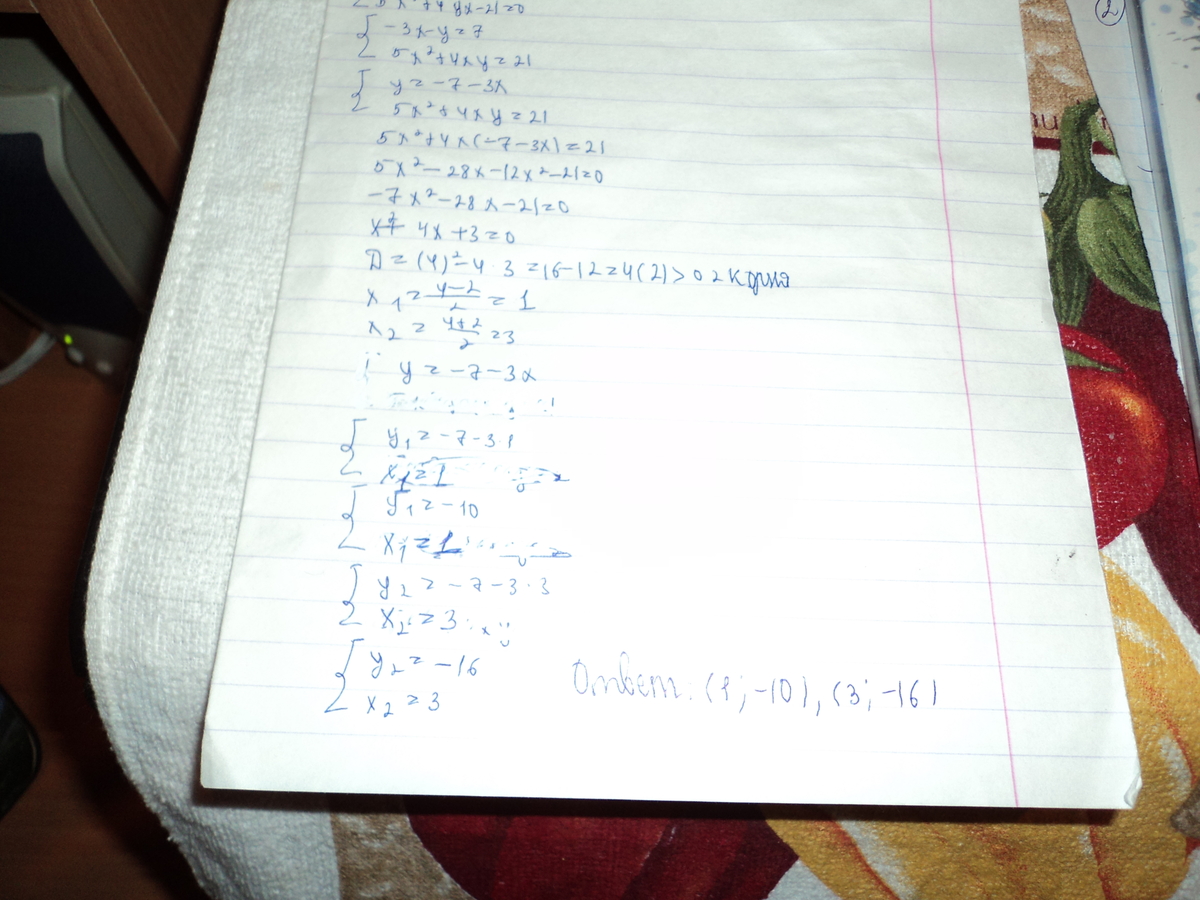 5x²+4yx-21=0
-3x-y=7
5x²+4xy=21
y=-7-3x
5x²+4xy=21
5x²+4x(-7-3x)=21
5x²-28x-12x²-21=0
-7x²-28x-21=0
4x+3=0
D=(4)²-4·3=16-12=4(2)>0 2 корня
x₁=(4-2)/2=1
x₂=(4+2)/2=3
y=-7-3x
y₁=-7-3·1
x₁=1
y₁=-10
x₁=1
y₂=-7-3·3
x₂=3
y₂=-16
x₂=3
Ответ: (1;-10), (3;-16)
2